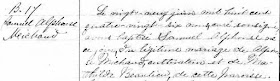 B-17
Samuel Alphonse
Michaud
Le vingt-neuf juin mil huit cent
quatre-vingt-six nous curé soussigné
avons baptisé Samuel Alphonse né
ce jour du légitime mariage de Alph
Michaud cultivateur et de Ma
Beaulieu de cette paroisse